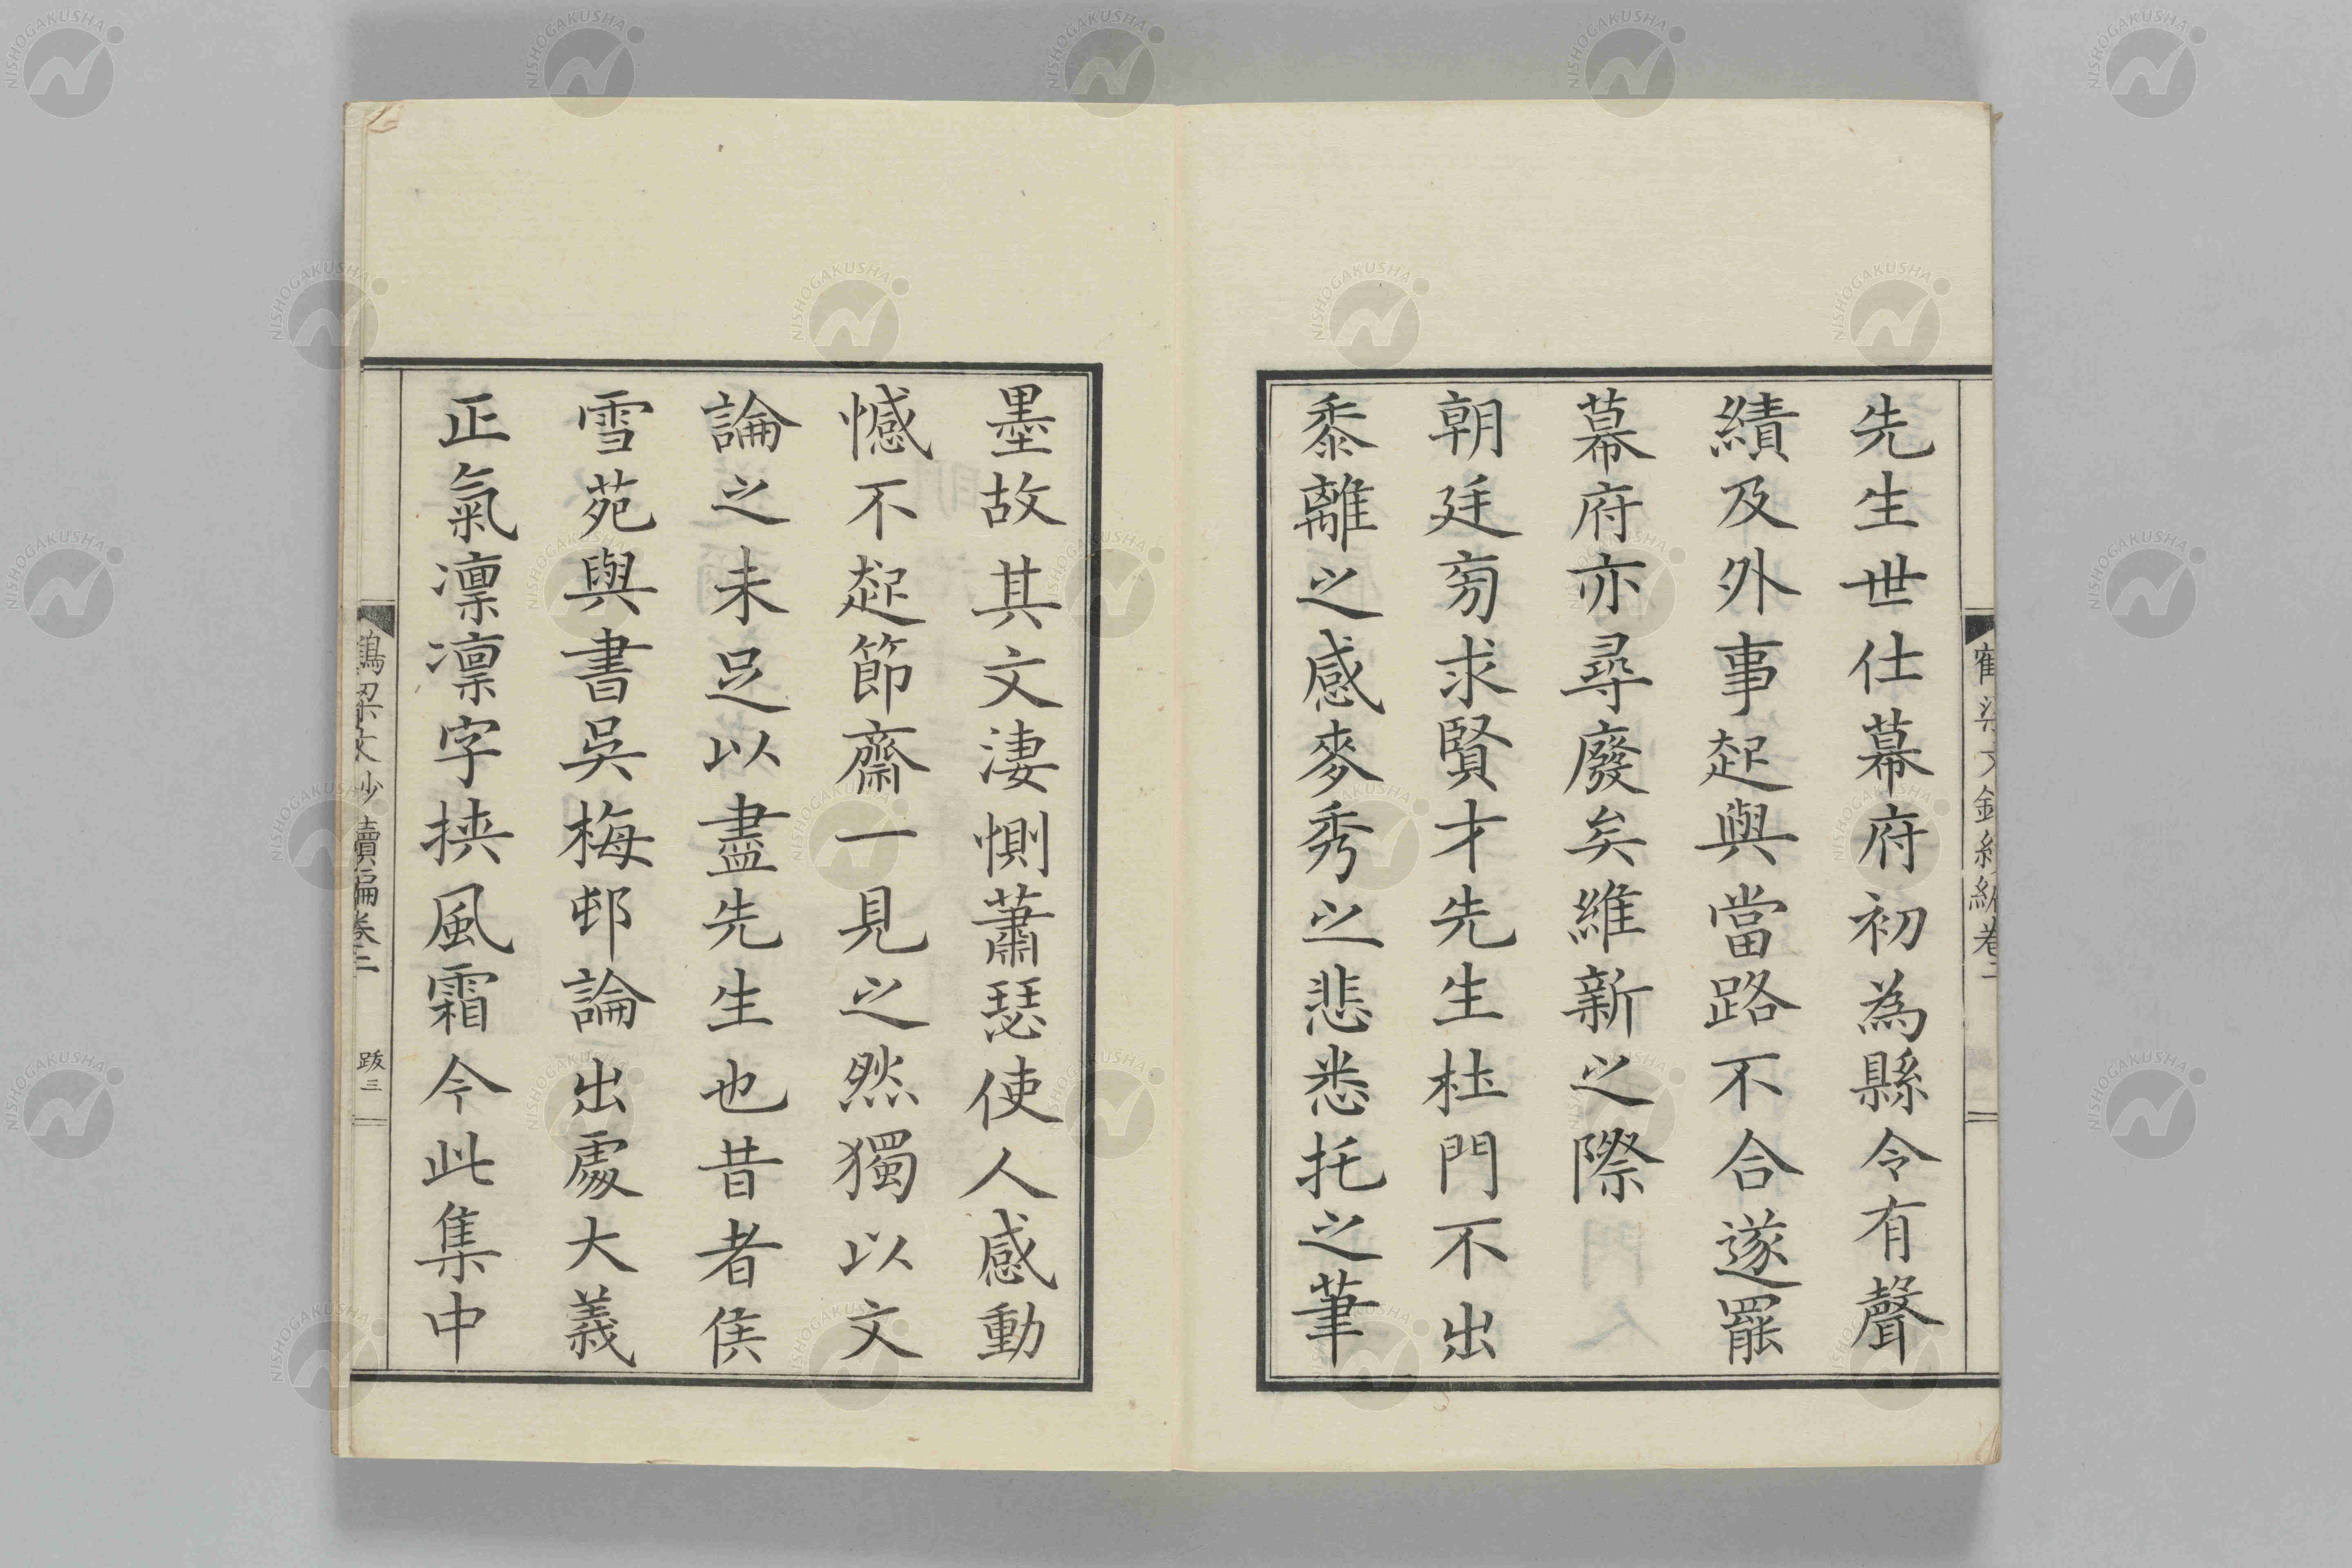 先生世仕幕府初為縣令有聲
績及外事起與當路不合遂罷
幕府亦尋廢矣維新之際
朝廷旁求賢才先生杜門不出
黍離之感麥秀之悲悉托之筆
墨故其文淒惻蕭瑟使人感動
憾不起節齋一見之然獨以文
論之未足以盡先生也昔者侯
雪苑與書吳梅邨論出處大義
正氣凛凛字挟風霜今此集中
鶴梁文鈔續編卷二
跋三
NISHOGAKUSHA